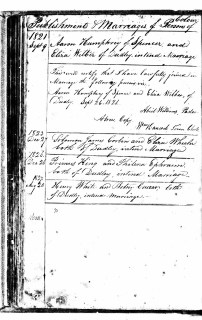 Publishment & Marriage of Persons of Color
1821
Sept 9 Aaron Humphry of Spencer and
Eliza Wilber of Dudley, intend Marriage
This will certify that I have lawfully joined in
Marriage the following persons viz
Aaron Humphry of Spencer and Eliza Wilber, of
Dudley Sept 26. 1821
Abiel Williams, Pastor
A true Copy
Town Clerk
Solomon Corbin and Eliza Wheeler
both of Dudley, intend Marriage
King and Ephraim
both of Dudley, intend Marriage
Henry White and Betsy both
of Dudley, intend marriage.